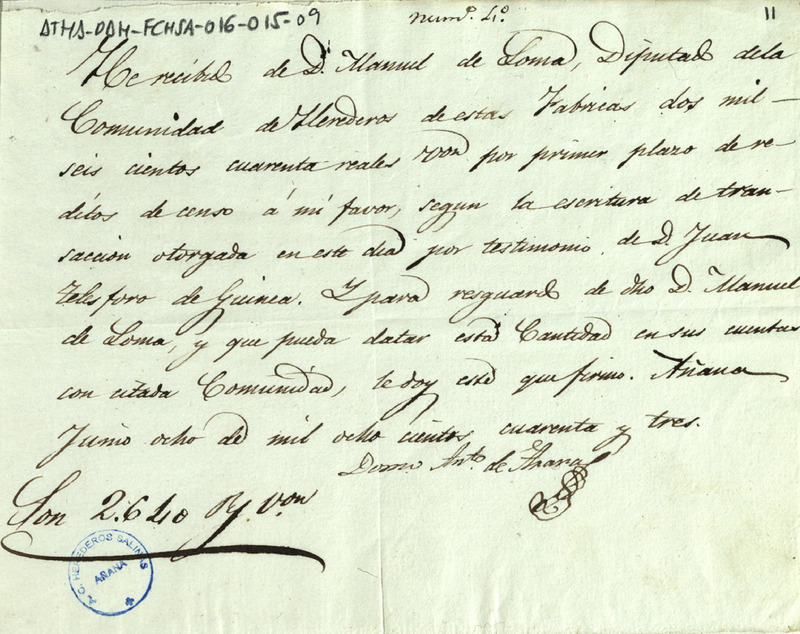 ATHA-DAH-FCHSA-016-015-09
num.º 4.º
11
He recibido de D. Manuel de Loma, Diputado de la
Comunidad de Herederos de estas Fabricas dos mil
seis cientos cuarenta reales von por primer plazo de re-
ditos de censo á mi favor, segun la escritura de tran-
saccion otorgada en este dia por testimonio de D. Juan
Telesforo de Guinea. Y para resguardo de dho D. Manuel
de Loma, y que pueda datar esta Cantidad en sus cuentas
con citada Comunidad, le doy este que firmo. Añana
Junio ocho de mil ocho cientos cuarenta y tres.
Dom.º Ant.º de
Son 2.640 R.s v.on
C. HEREDEROS SALINAS
AÑANA